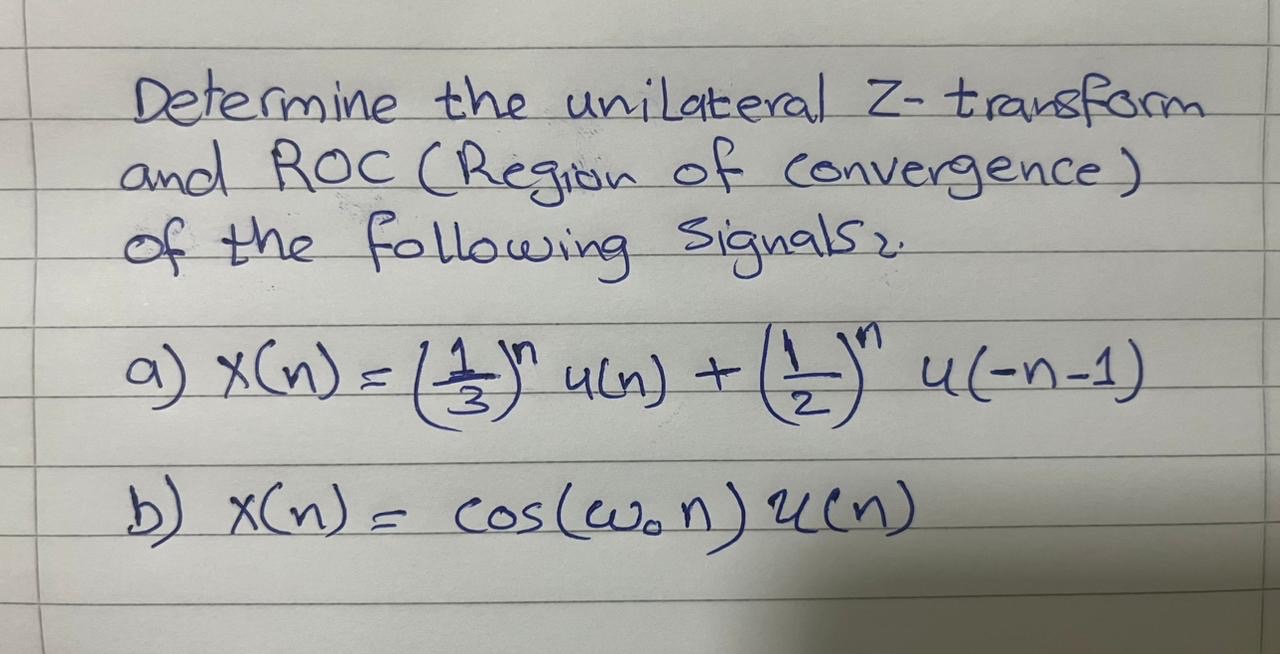 Determine the unilateral Z-transform
and ROC (Region of convergence)
of the following signals:
a) x(n) = (1/3)^n u(n) + (1/2)^n u(-n-1)
b) x(n) = cos(ω₀n) u(n)